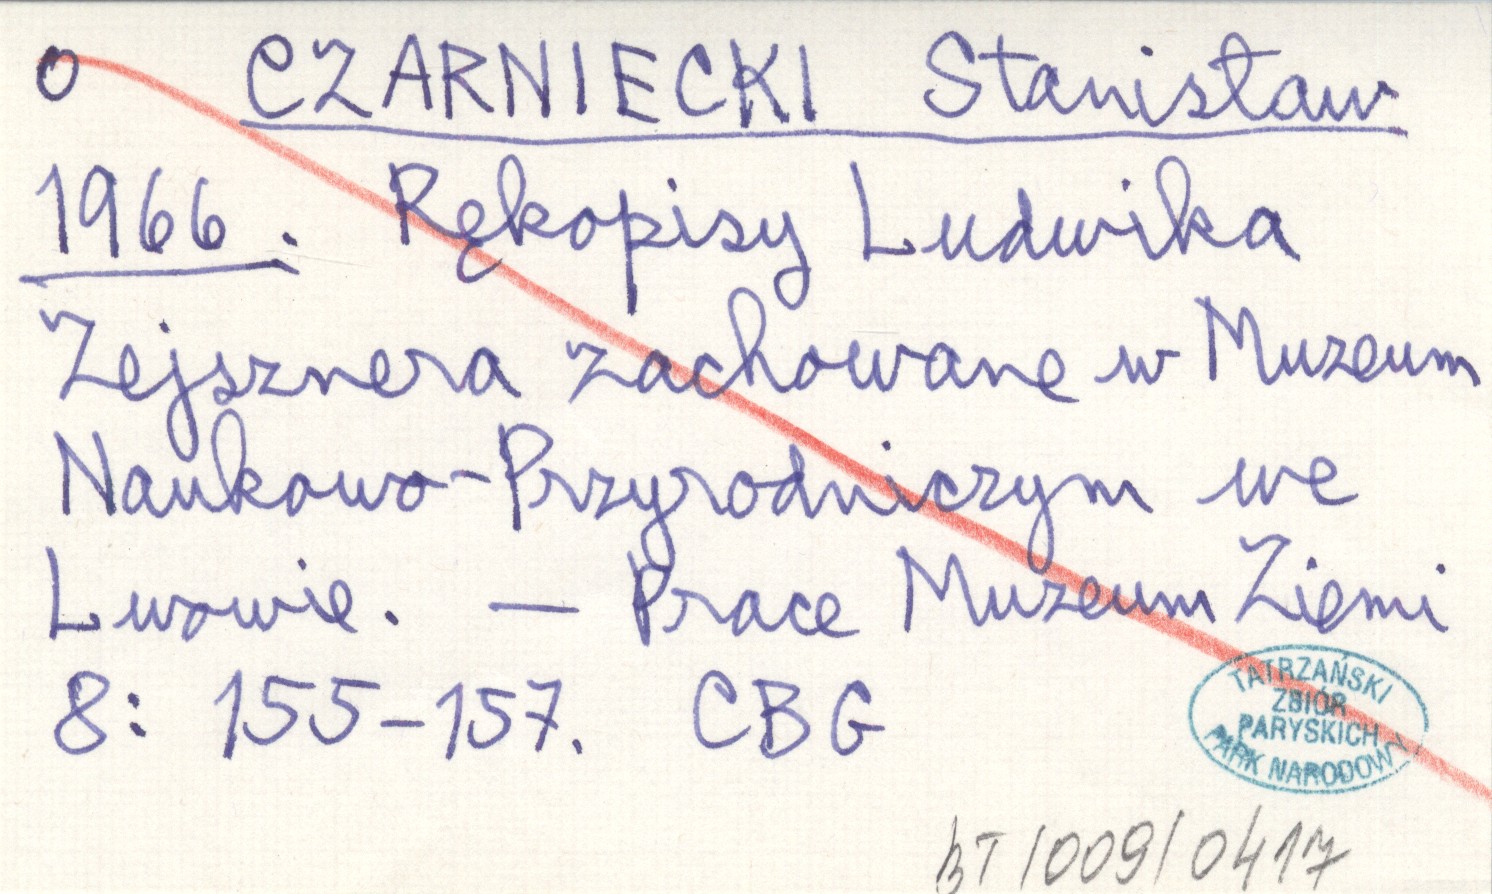 o CZARNIECKI Stanisław
1966. Rękopisy Ludwika
Zejsznera zachowane w Muzeum
Naukowo-Przyrodniczym we
Lwowie. — Prace Muzeum Ziemi
8: 155-157. CBG
TATRZAŃSKI
ZBIÓR
PARYSKICH
PARK NARODOWY
BT/009/0417